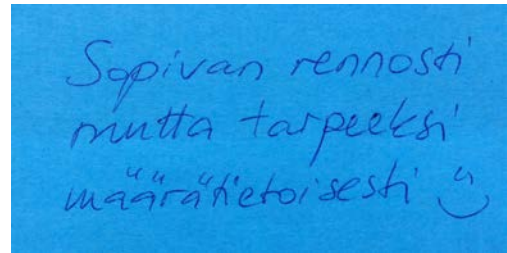 Sopivan rennosti
mutta tarpeeksi
määrätietoisesti